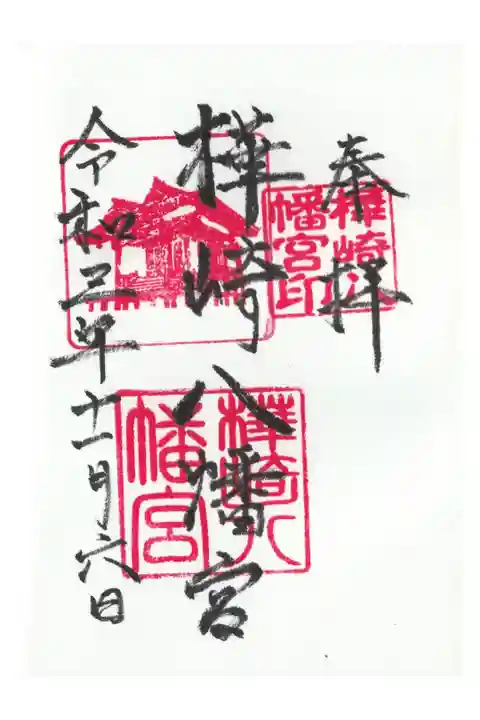 奉拝
樺崎八幡宮印
樺崎八幡宮
樺崎八幡宮
令和三年十一月六日